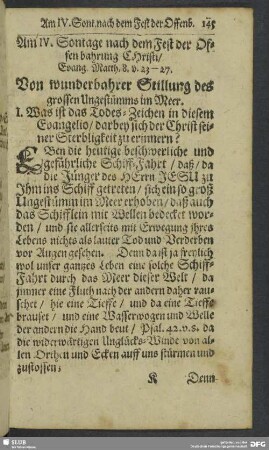 Am IV. Sont. nach dem Fest der Offenb. 145
Am IV. Sontage nach dem Fest der Of-
fenbahrung CHristi/
Evang. Matth. 8. v. 23-27.
Von wunderbahrer Stillung des
grossen Ungestümms im Meer.
I. Was ist das Todes-Zeichen in diesem
Evangelio/ darbey sich der Christ sei-
ner Sterbligkeit zu erinnern?
EBen die heutige beschwerliche und
gefährliche Schiff-Fahrt/ daß/ da
die Jünger des HErrn JESU zu
Ihm ins Schiff getreten/ sich ein so groß
Ungestümm im Meer erhoben/ daß auch
das Schifflein mit Wellen bedecket wor-
den/ und sie allerseits mit Erwegung ihres
Lebens nichts als lauter Tod und Verderben
vor Augen gesehen. Denn da ist ja freylich
wol unser gantzes Leben eine solche Schiff-
Fahrt durch das Meer dieser Welt/ da
jmmer eine Fluth nach der andern daher rau-
schet/ hie eine Tieffe/ und da eine Tieffe
brauset/ und eine Wasserwogen und Welle
der andern die Hand beut/ Psal. 42. v. 8. da
die widerwärtigen Unglücks-Winde von al-
len Orthen und Ecken auff uns stürmen und
zustossen;
K Denn
SLUB